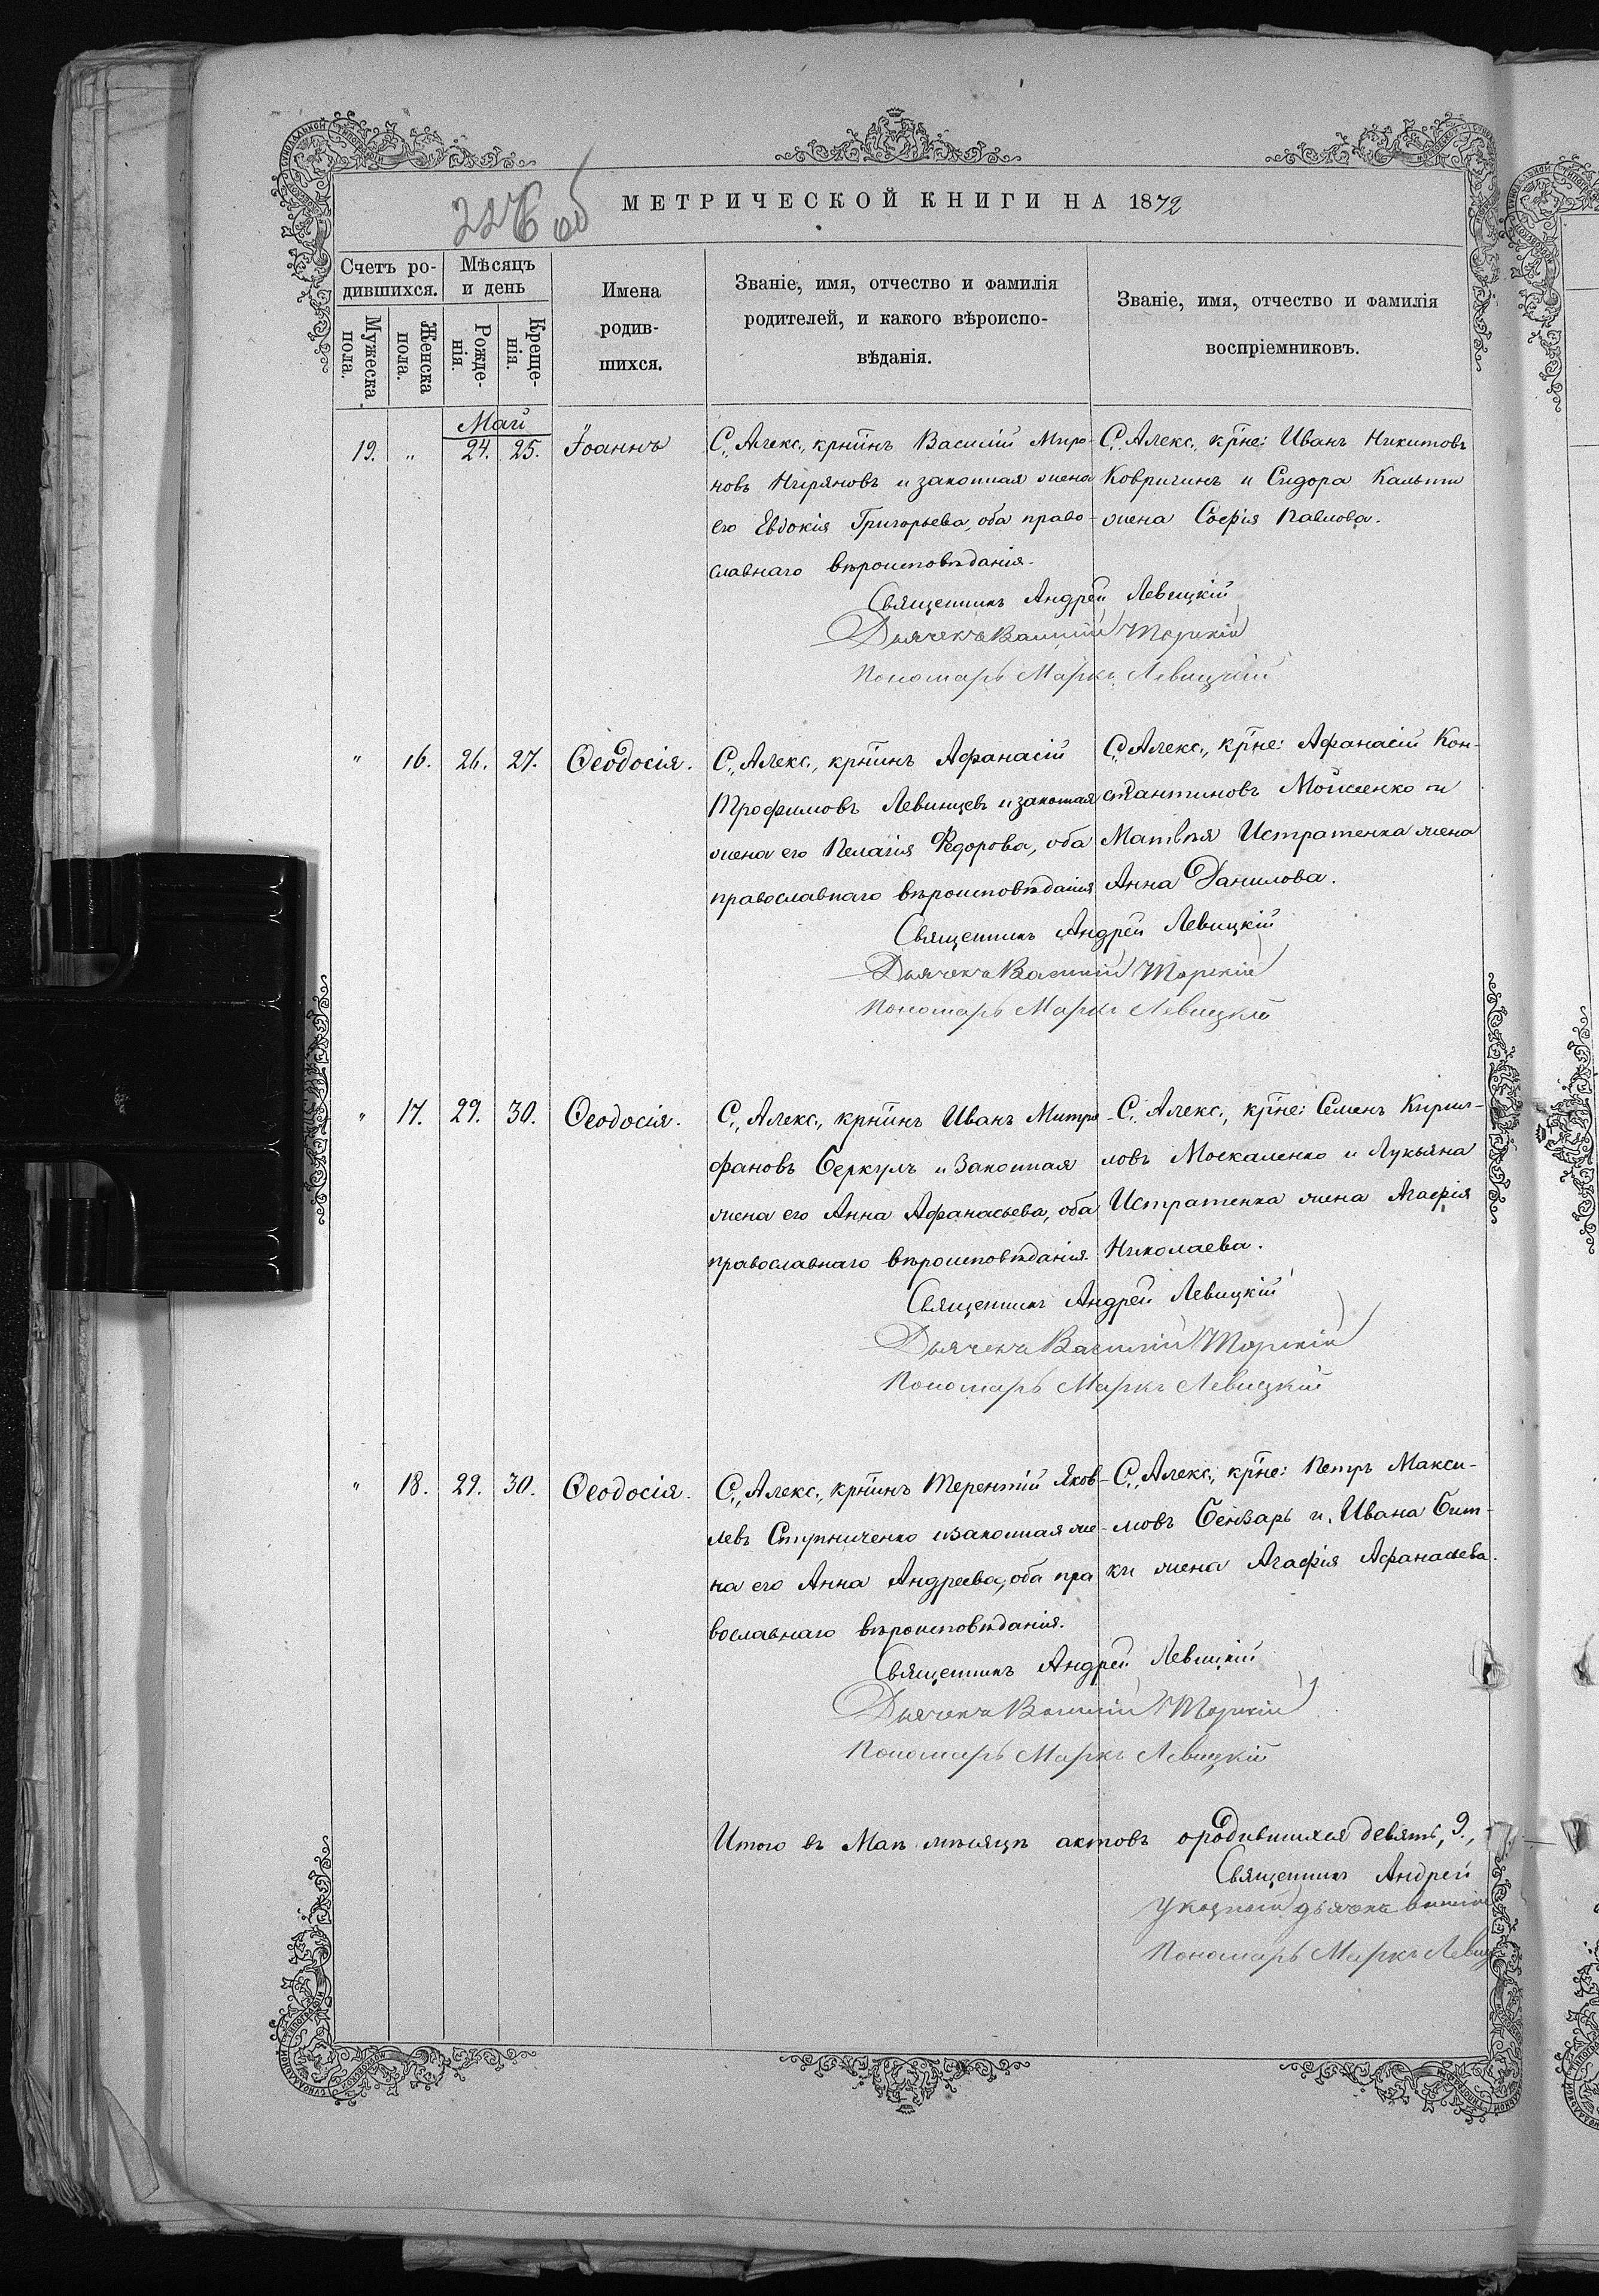 226 об
МЕТРИЧЕСКОЙ КНИГИ НА 1872
Счетъ ро-
дившихся.
Мужеска пола.
Женска пола.
Мѣсяцъ
и день
Рожде-
нія.
Креще-
нія.
Имена
родив-
шихся.
Званіе, имя, отчество и фамилія
родителей, и какого вѣроиспо-
вѣданія.
Званіе, имя, отчество и фамилія
воспріемниковъ.
Май
19. „ 24. 25. Іоаннъ
С., Алекс., крнинъ Василій Миро-
новъ Нигряновъ и законная жена
его Евдокія Григорьева, оба право-
славнаго вѣроисповѣданія.
С., Алекс., крне: Иванъ Никитовъ
Ковригинъ и Сидора
жена Софія Павлова.
Священникъ Андрей Левицкій
Дьячекъ Василій
Пономарь Маркъ Левицкій
„ 16. 26. 27. Ѳеодосія.
С., Алекс., крнинъ Афанасій
Трофимовъ Левинцевъ и законная
жена его Пелагія Федорова, оба
православнаго вѣроисповѣданія
С., Алекс., крне: Афанасій Кон-
стантиновъ Мойсеенко и
Матвѣя Истратенка жена
Анна Данилова.
Священникъ Андрей Левицкій
Дьячекъ Василій
Пономарь Маркъ Левицкій
„ 17. 29. 30. Ѳеодосія.
С., Алекс., крнинъ Иванъ Митро-
фановъ Беркулъ и законная
жена его Анна Афанасьева, оба
православнаго вѣроисповѣданія.
С., Алекс., крне: Семенъ Кирил-
ловъ Москаленко и Лукьяна
Истратенка жена Агафія
Николаева.
Священникъ Андрей Левицкій
Дьячекъ Василій
Пономарь Маркъ Левицкій
„ 18. 29. 30. Ѳеодосія.
С., Алекс., крнинъ Терентій Яков-
левъ Ступниченко и законная же-
на его Анна Андреева, оба пра
вославнаго вѣроисповѣданія.
С., Алекс., крне: Петръ Макси-
мовъ Бензарь и Ивана Бит-
ки жена Агафія Афанасьева.
Священникъ Андрей Левицкій
Дьячекъ Василій
Пономарь Маркъ Левицкій
Итого въ Маѣ мѣсяцѣ актовъ о родившихся девять, 9.,
Священникъ Андрей
Указный дьячекъ
Пономарь Маркъ Левиц